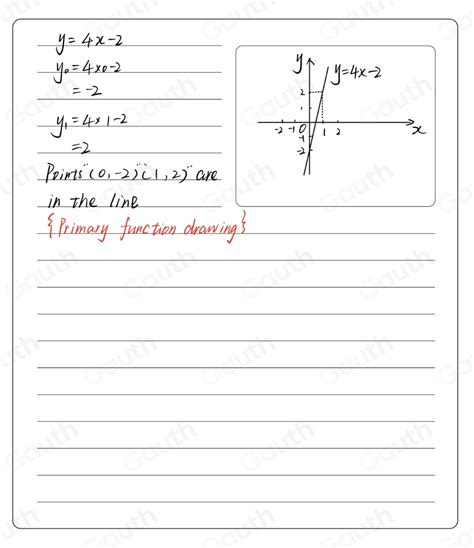 y = 4x-2
y₀ = 4x0-2
= -2
y₁ = 4x1-2
=2
Points "(0, -2)" "(1, 2)" are
in the line
{Primary function drawing}
y
y=4x-2
2
1
-2 -1 0 1 2 x
-1
-2
Gauth